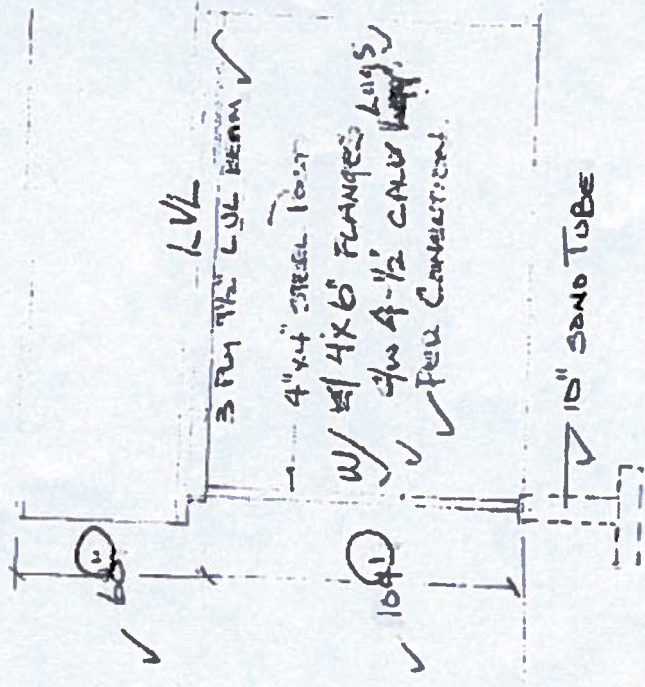 LVL
3 PLY 9½" LVL BEAM
4"x4" STEEL POST
W/ 4x6" FLANGES
C/W 4-½" GALV LUGS
PER CONNECTION
10" SONO TUBE
104"